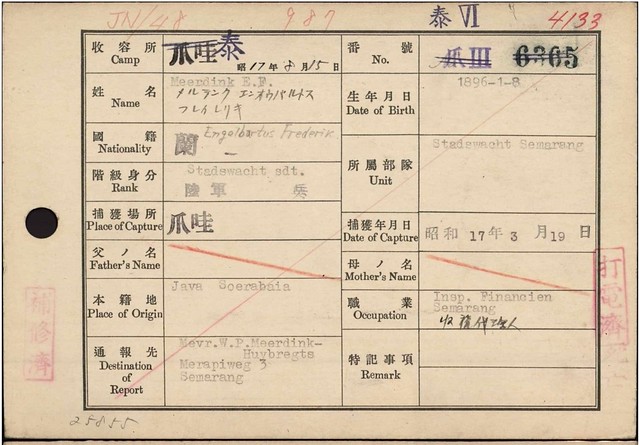 JN/48
987
泰 VI
4133
收容所
Camp
爪哇 泰
昭17年8月15日
番號
No.
爪III 6365
姓名
Name
Meerdink E.F.
メルランク エンオウバルトス
フレイレリキ
生年月日
Date of Birth
1896-1-8
國籍
Nationality
蘭
Engelbartus Frederik
所屬部隊
Unit
Stadswacht Semarang
階級身分
Rank
Stadswacht sdt.
陸軍 兵
捕獲場所
Place of Capture
爪哇
捕獲年月日
Date of Capture
昭和17年3月19日
父ノ名
Father's Name
母ノ名
Mother's Name
本籍地
Place of Origin
Java Soerabaia
職業
Occupation
Insp. Financien
Semarang
通報先
Destination
of
Report
Mevr.W.P.Meerdink-
Huybregts
Merapiweg 3
Semarang
特記事項
Remark
補修濟
打電濟
25855